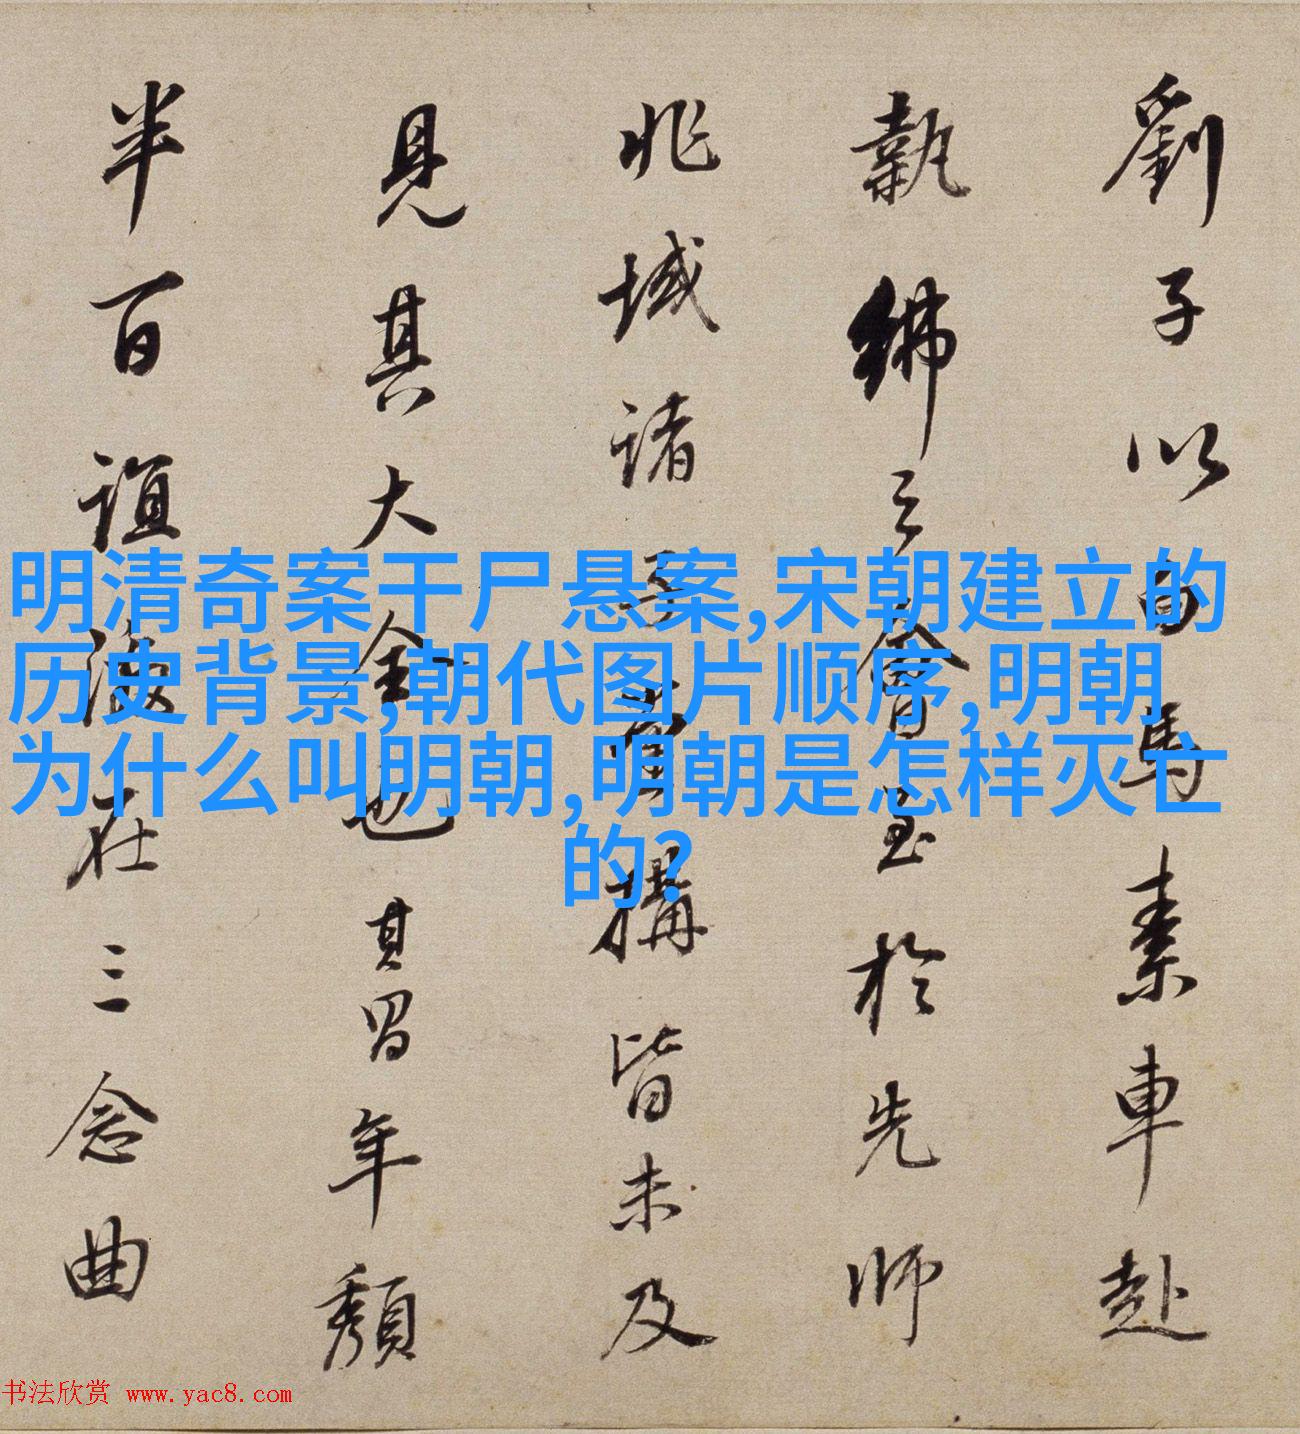 劉子以白馬素車赴
執紼之會至於先師
兆域諸子構皆未及
見其大全也其年頹
半百誼在三念曲
明清奇案干尸悬案,宋朝建立的
历史背景,朝代图片顺序,明朝
为什么叫明朝,明朝是怎样灭亡
的?
书法欣赏 www.yac8.com